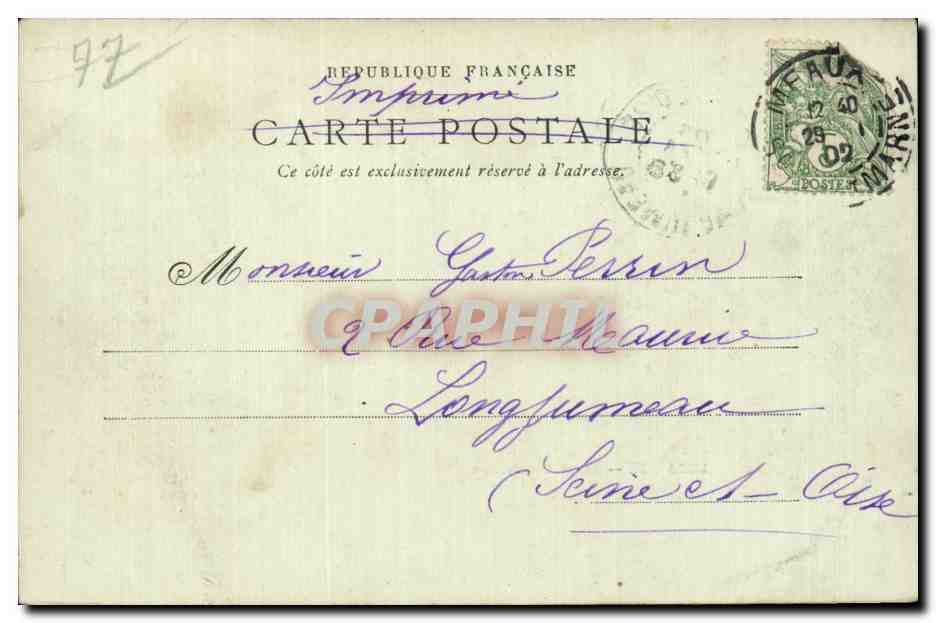 77
REPUBLIQUE FRANÇAISE
Imprimé
CARTE POSTALE
Ce côté est exclusivement réservé à l'adresse.
MEAUX
12 40
29 1
02
MARNE
POSTES
Monsieur Gaston Perrin
CPAPHIL
2 Rue
Longjumeau
(Seine et Oise